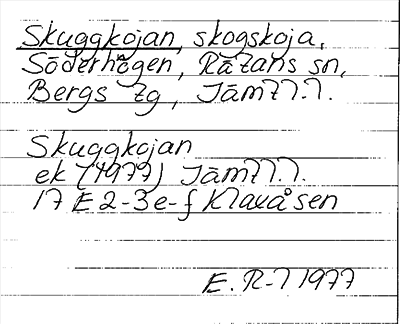 Skuggkojan, skogskoja,
Söderhögen, Rätans sn,
Bergs tg, Jämtl.
Skuggkojan
ek (1977) Jämtl.
17 E 2-3 e-f Klaxåsen
E. R-l 1977